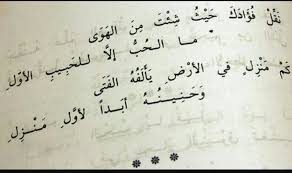 نَقِّلْ فُؤَادَكَ حَيْثُ شِئْتَ مِنَ الْهَوَى
مَا الْحُبُّ إِلَّا لِلْحَبِيبِ الْأَوَّلِ
كَمْ مَنْزِلٍ فِي الْأَرْضِ يَأْلَفُهُ الْفَتَى
وَحَنِينُهُ أَبَداً لِأَوَّلِ مَنْزِلِ
***